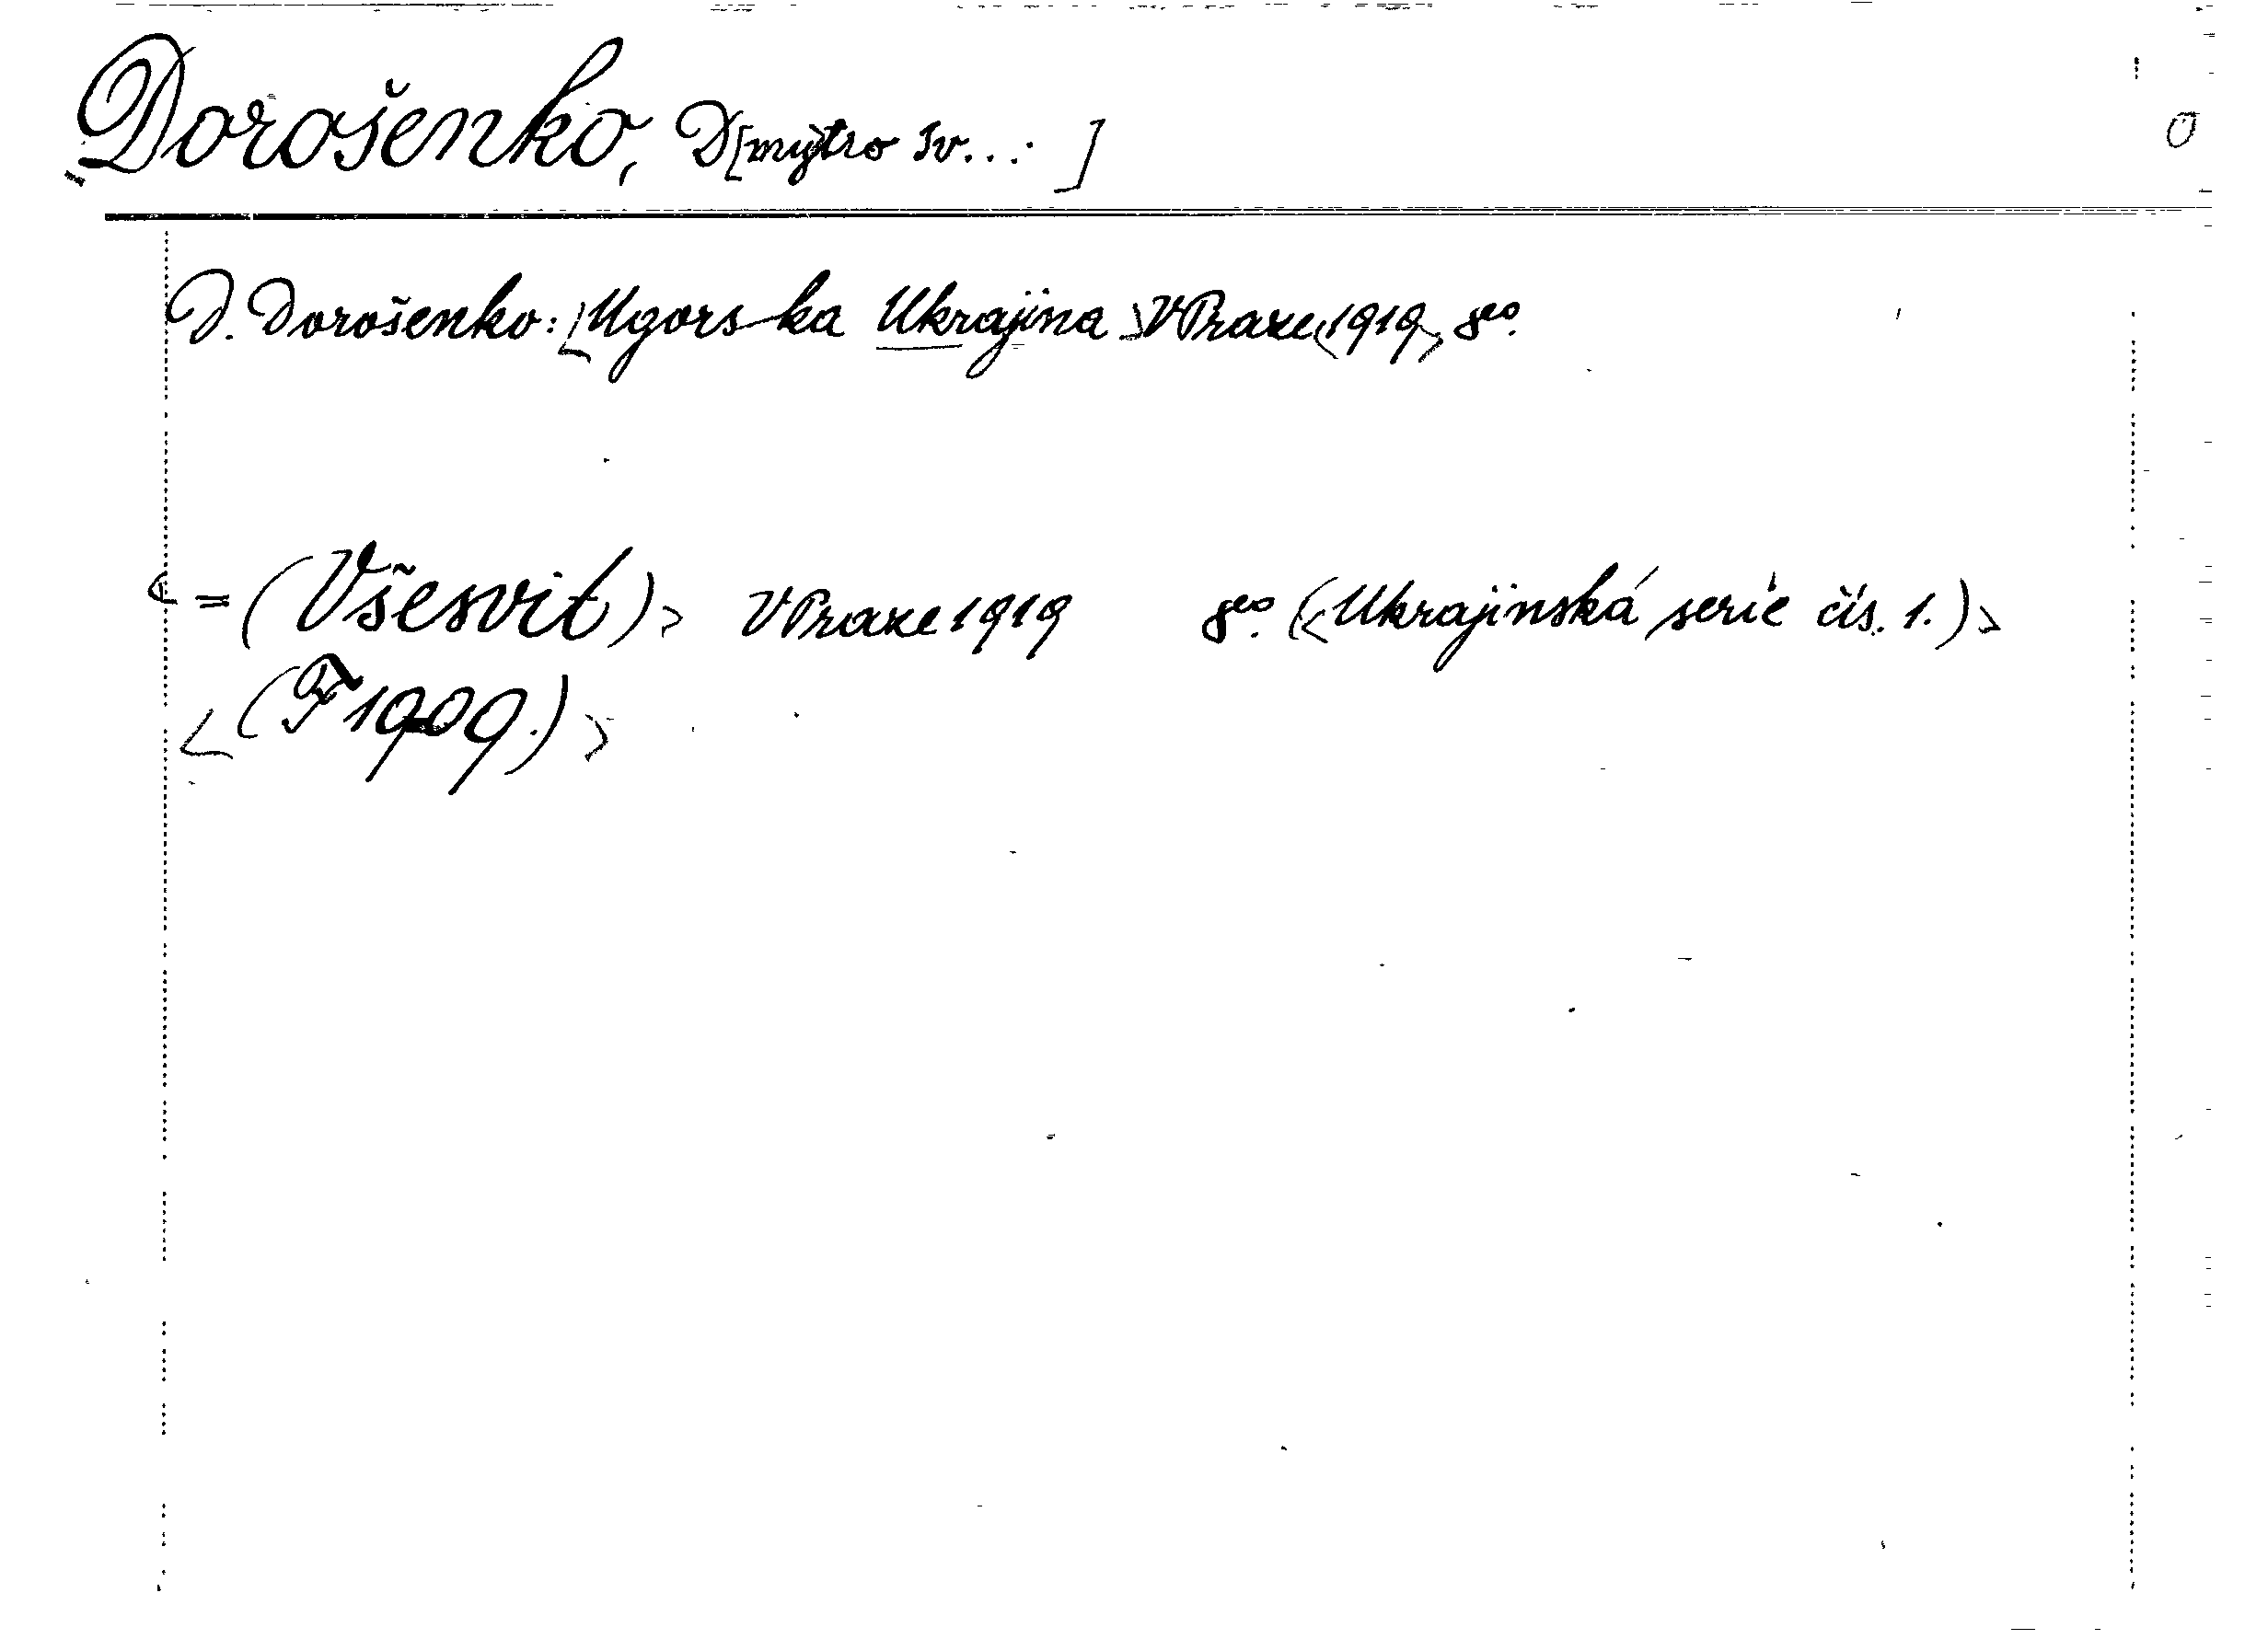 Dorošenko, D[mytro Iv...]
D. Dorošenko: Ugorska Ukrajina V Praze 1919 8⁰.
=(Všesvit) V Praze 1919 8⁰. (Ukrajinská serie čís. 1.)
(F 1909.)